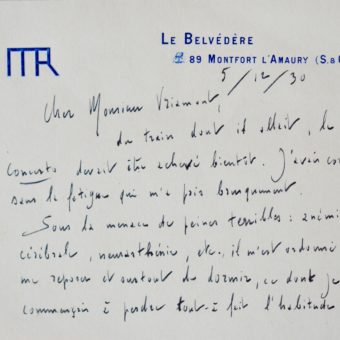 MR
LE BELVÉDÈRE
89 MONTFORT L'AMAURY (S.&
5/12/30
Cher Monsieur Vriamont,
du train dont il allait, le
concerto devait être achevé bientôt. J'avais co
sans la fatigue qui m'a pris brusquement.
Sous la menace de peines terribles : anémi
cérébrale, neurasthénie, etc., il m'est ordonné
me reposer et surtout de dormir, ce dont je
commençais à perdre tout-à fait l'habitude